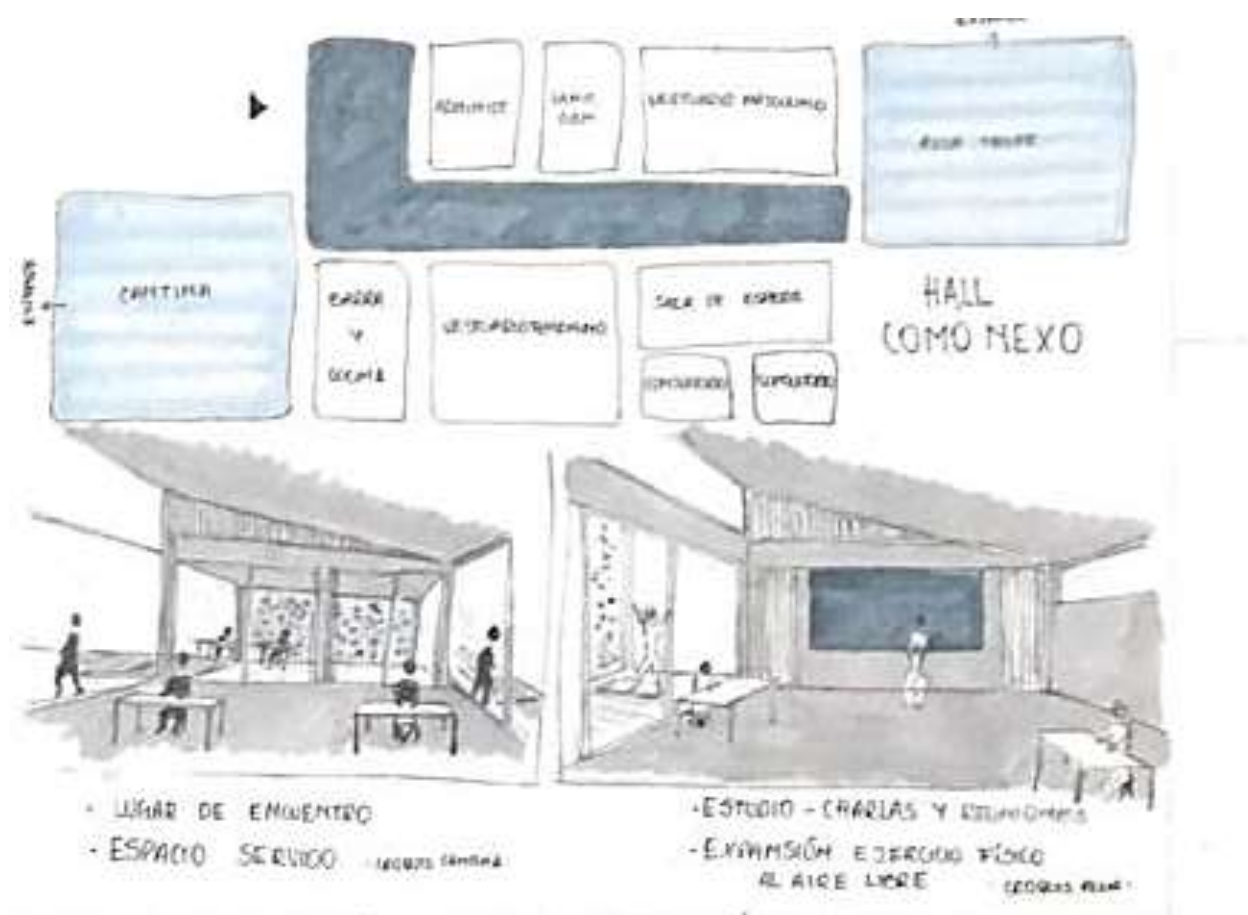 ADMINIST
VESTUARIO MASCULINO
CANTINA
BARRA
Y
COCINA
VESTUARIO FEMENINO
SALA DE ESPERA
CONSULTORIO
CONSULTORIO
HALL
COMO NEXO
- LUGAR DE ENCUENTRO
- ESPACIO SERVIDO
CROQUIS CANTINA
- ESTUDIO - CHARLAS Y REUNIONES
- EXPANSIÓN EJERCICIO FÍSICO
AL AIRE LIBRE
CROQUIS AULA